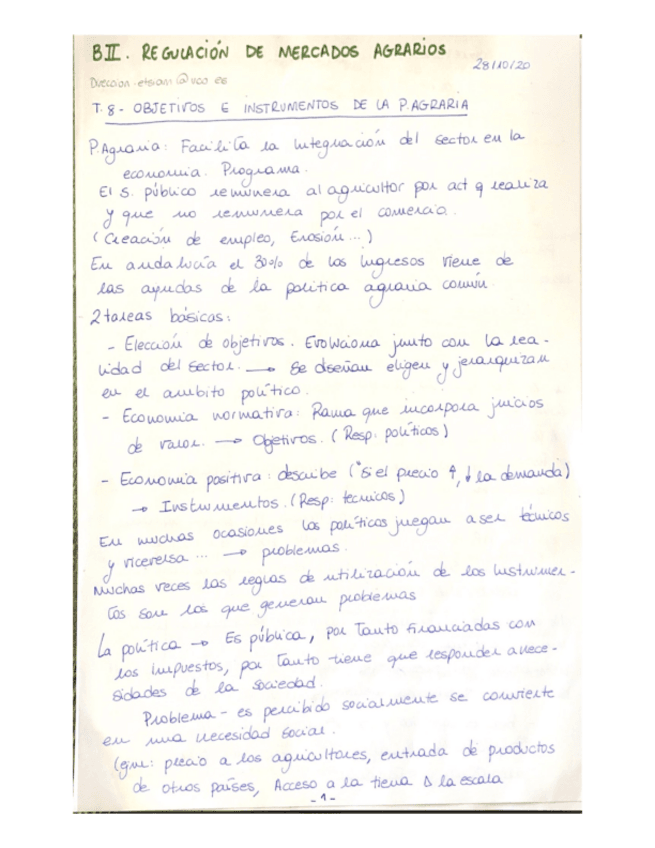 BII. REGULACIÓN DE MERCADOS AGRARIOS
28/10/20
Direccion.etsiam@uco.es
T.8- OBJETIVOS E INSTRUMENTOS DE LA P.AGRARIA
P.Agraria: Facilita la integración del sector en la
economia. Programa.
El s. público remunera al agricultor por act q realiza
y que no remunera por el comercio.
(Creación de empleo, Erosión...)
En andalucía el 30% de los ingresos viene de
las ayudas de la política agraria común.
2 tareas básicas:
- Elección de objetivos. Evoluciona junto con la rea-
lidad del sector. → Se diseñan eligen y jerarquizan
en el ambito político.
- Economia normativa: Rama que incorpora juicios
de valor. → Objetivos. (Resp: políticos)
- Economia positiva: describe ("si el precio ↑, ↓ la demanda)
→ Instrumentos. (Resp: tecnicos)
En muchas ocasiones los políticos juegan a ser técnicos
y viceversa ... → problemas.
Muchas veces las reglas de utilización de los instrumen-
tos son los que generan problemas
La política → Es pública, por tanto financiadas con
los impuestos, por tanto tiene que responder a nece-
sidades de la sociedad.
Problema - es percibido socialmente se convierte
en una necesidad social.
(ejm: precio a los agricultores, entrada de productos
de otros países, Acceso a la tierra Δ la escala
-1-